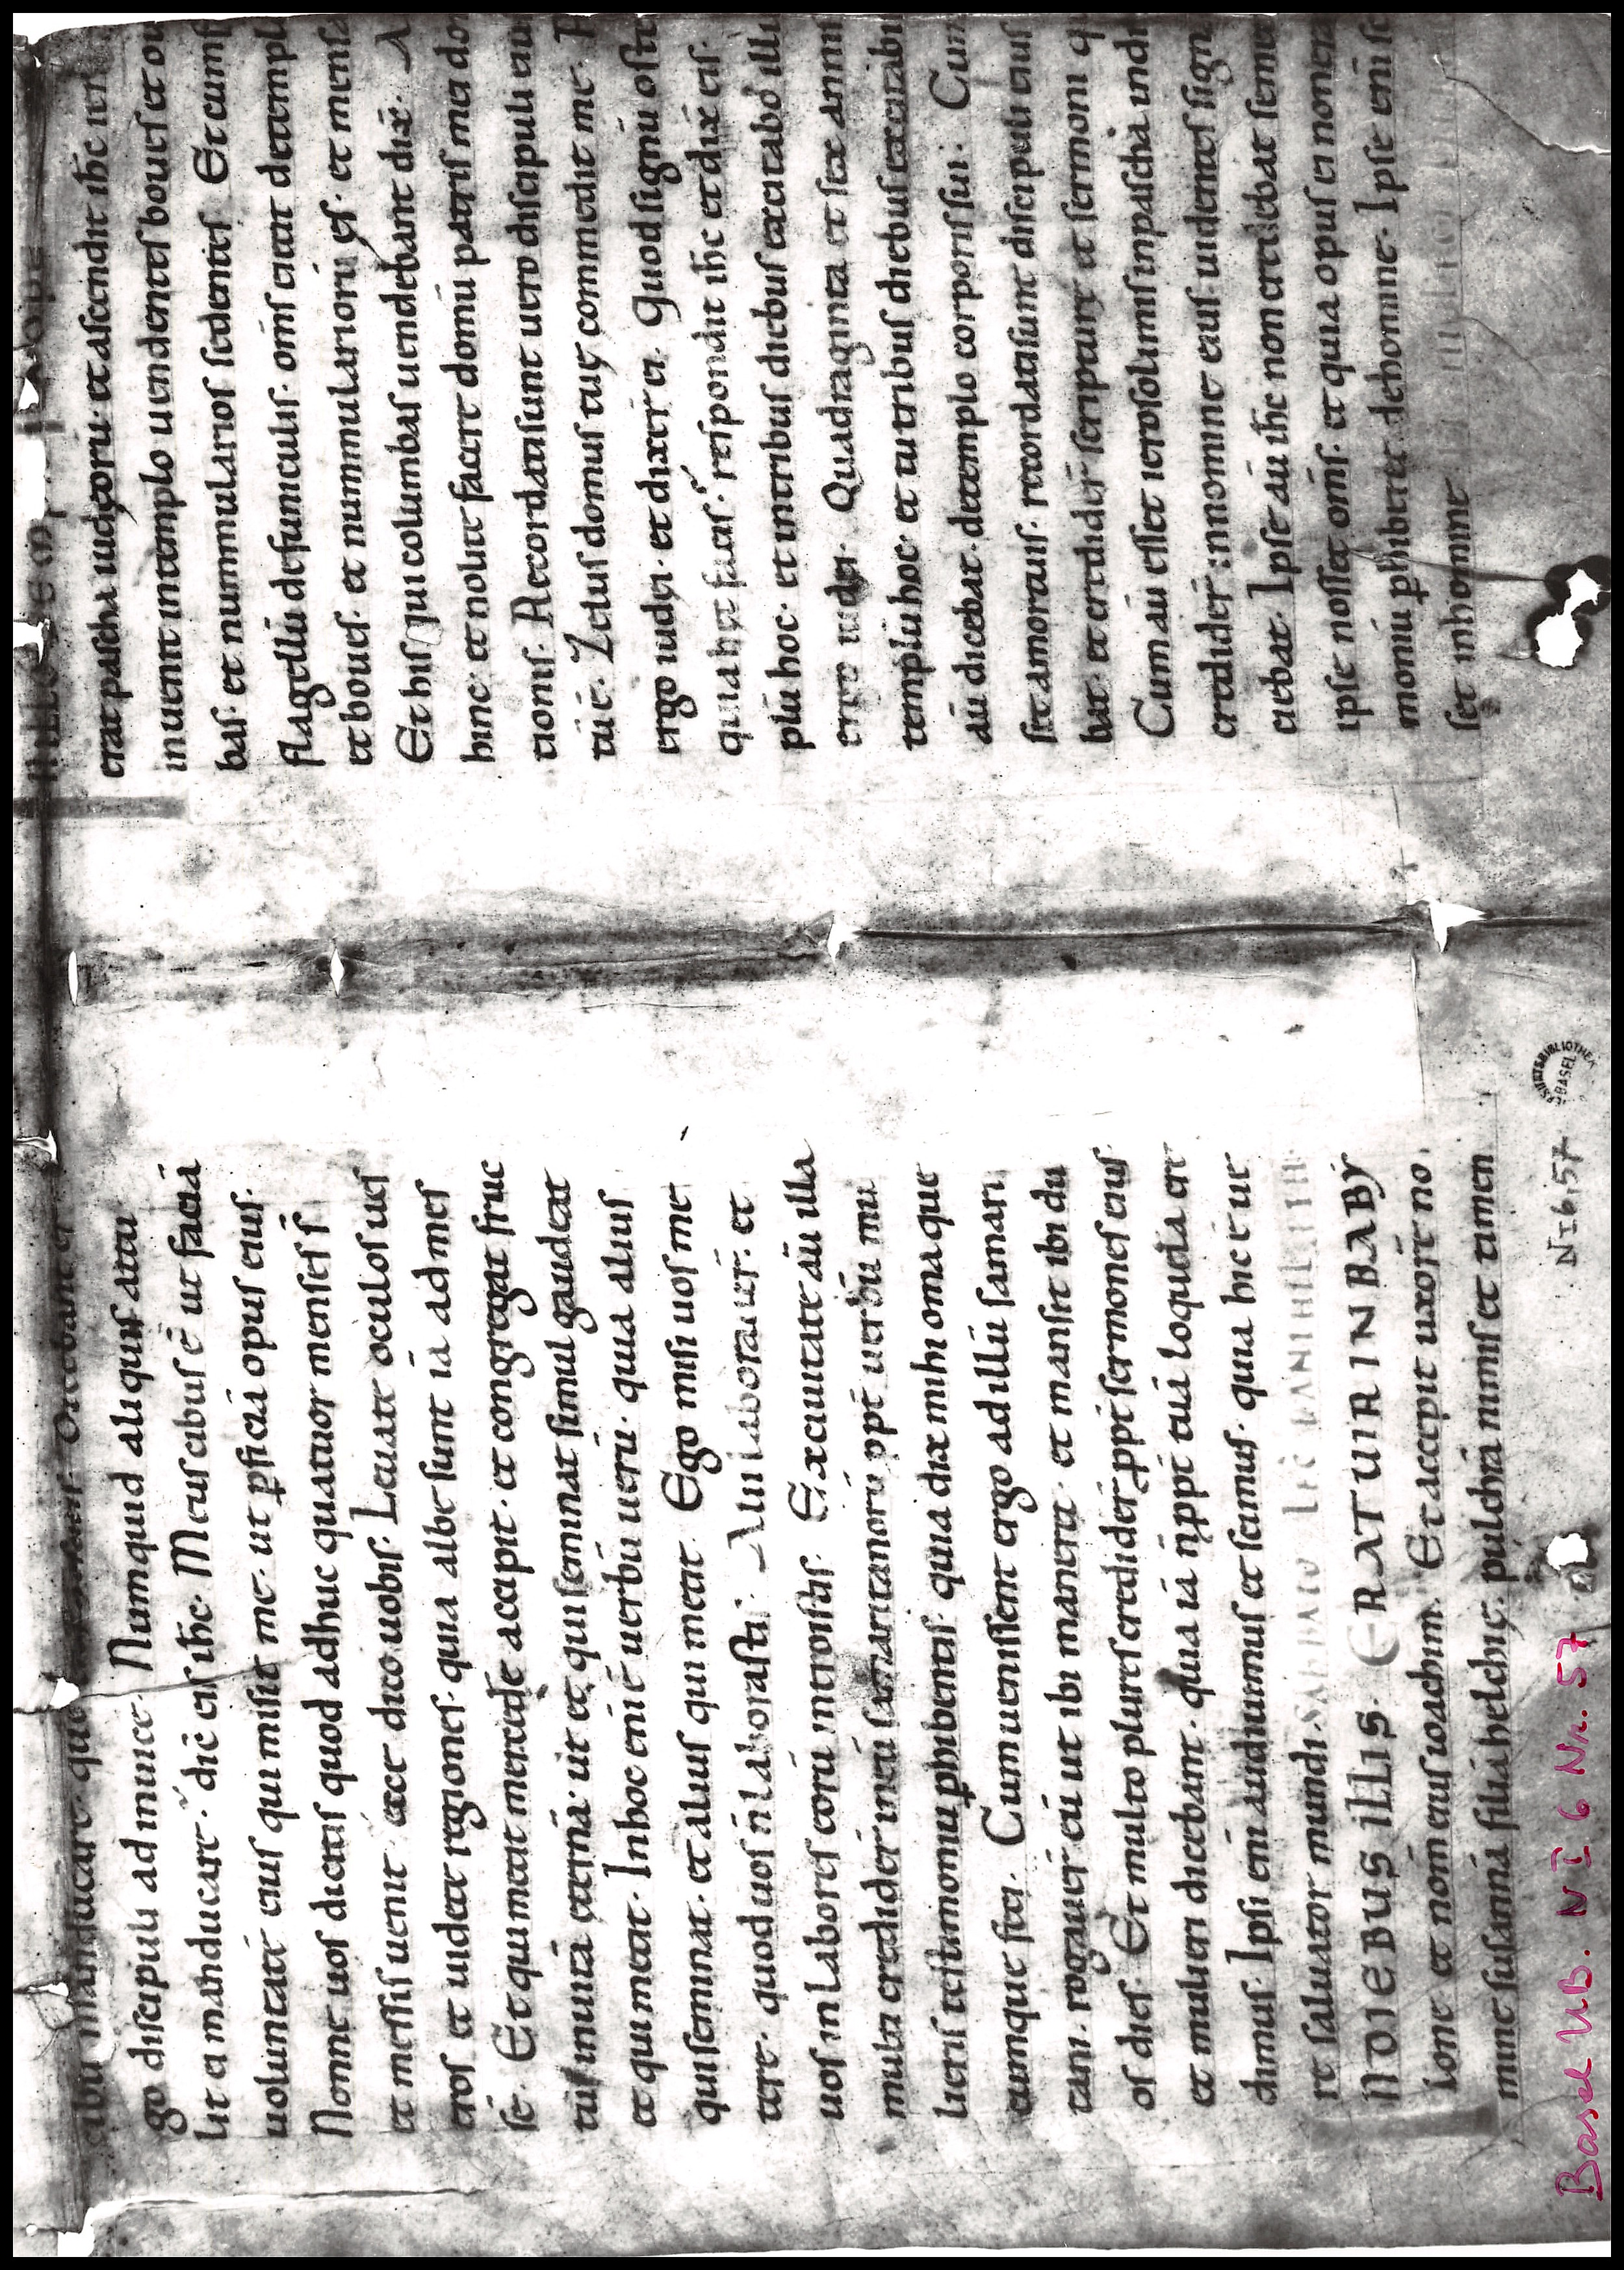 cibū manducare. que
go discipuli adinuicē. Numquid aliquis attu
lit ei manducare? dic̄ eis ih̄c. Meus cibus ē ut faciā
uoluntatē eius qui misit me. ut ꝑficiā opus eius.
Nonne uos dicitis quod adhuc quatuor menses s̄
et messis uenit. ecce dico uobis. Leuate oculos ues
tros et uidete regiones. quia albe sunt iā ad mes
sē. Et qui metit mercedē accipit. et congregat fruc
tū in uitā ęternā. ut et qui seminat simul gaudeat
et qui metit. In hoc eni ē uerbū uerū. quia alius
qui seminat. et alius qui metit. Ego misi uos me
tere. quod uos n̄ laborastis. Alii laborauer̄. et
uos in labores eorū introistis. Ex ciuitate aū illa
multi credider̄ in eū samaritanorū ꝓpt̄ uerbū mu
lieris testimoniū ꝑhibentis. quia dix̄ mihi omia que
cumque feci. Cum uenissent ergo ad illū samari
tani. rogauer̄ eū ut ibi maneret. et mansit ibi du
os dies. Et multo plures credider̄ ꝓpt̄ sermones eius.
et mulieri dicebant. quia iā n̄ ꝓpt̄ tuā loquelā cre
dimus. Ipsi eni audiuimus et scimus. quia hic ē ue
re saluator mundi. SABBATO LEC̄ DANIHELIS
IN DIEBUS ILLIS. ERAT UIR IN BABY
lone et nom̄ eius ioachim. Et accepit uxorē no
mine susannā filiā helchię. pulchrā nimis et timen
erat pascha iudęorū. et ascendit ih̄c ier
inuenit in templo uendentes boues et ou
bas. et nummularios sedentes. Et cum f
flagellū de funiculis. om̄s eiecit de templ
et boues. et nummulariorū ęs. et mensa
Et his qui columbas uendebant dix̄. A
hinc. et nolite facere domū patris mei do
tionis. Recordati sunt uero discipuli eiu
tū ē. Zelus domus tuę commedit me. R
ergo iudei. et dixer̄ ei. Quod signū oste
quia hec facis? respondit ih̄c et dix̄ eis.
plū hoc. et in tribus diebus excitabo ill
ergo iudei. Quadraginta et sex anni
templū hoc. et tu tribus diebus excitabi
aū dicebat. de templo corporis sui. Cum
set a mortuis. recordati sunt discipuli eius
bat. et credider̄ scripturę et sermoni q
Cum aū esset ierosolimis in pascha in di
credider̄ in nomine eius. uidentes sign
ciebat. Ipse aū ih̄c non credebat semet
ipse nosset om̄s. et quia opus ei non era
moniū ꝑhiberet de homine. Ipse eni sc
set in homine
N I 6, 57
UNIVERSITÄTSBIBLIOTHEK BASEL
Basel UB. N I 6 Nr. 57